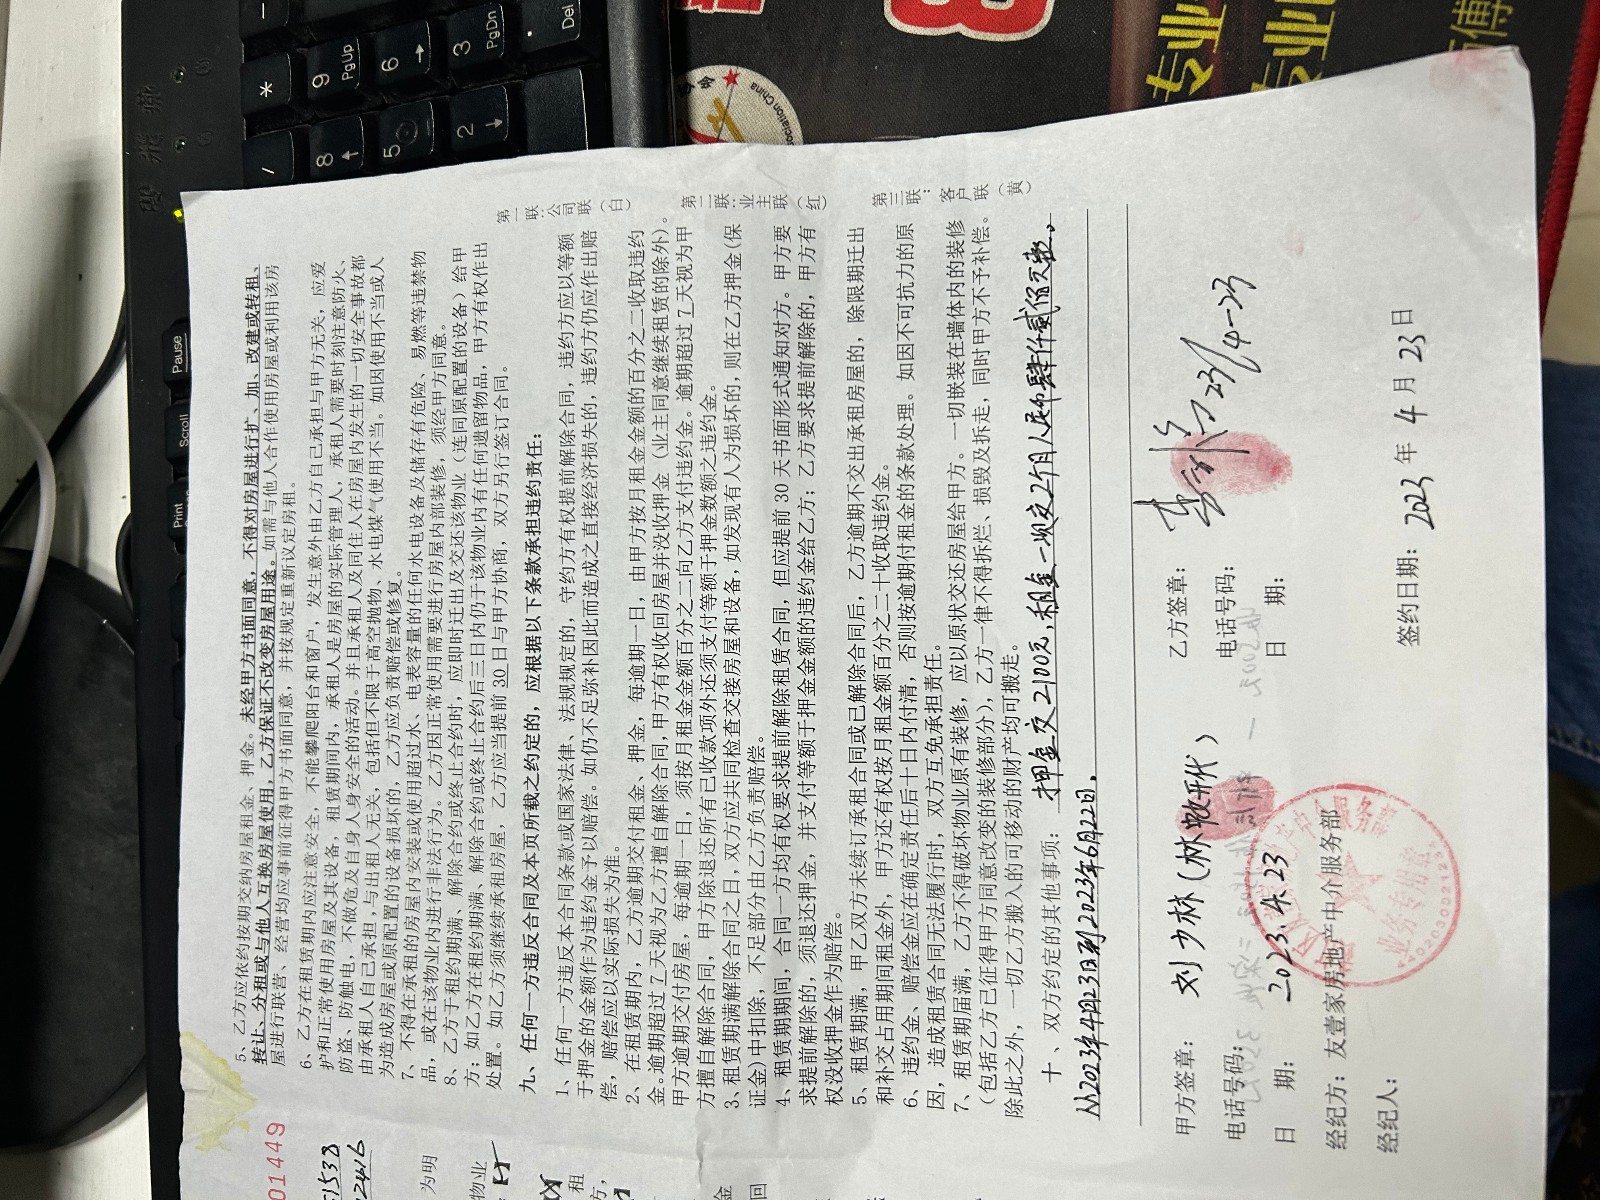 5、乙方应依约按期交纳房屋租金、押金。未经甲方书面同意，不得对房屋进行扩、加、改建或转租、
转让、分租或与他人互换房屋使用，乙方保证不改变房屋用途。如需与他人合作使用房屋或利用该房
屋进行联营、经营均应事前征得甲方书面同意，并按规定重新议定房租。
6、乙方在租赁期内应注意安全，不能攀爬阳台和窗户，发生意外由乙方自己承担与甲方无关，应爱
护和正常使用房屋及其设备，租赁期间内，承租人是房屋的实际管理人，承租人需要时刻注意防火、
防盗、防触电，不做危及自身人身安全的活动。并且承租人及同住人在房屋内发生的一切安全事故都
由承租人自己承担，与出租人无关，包括但不限于高空抛物、水电煤气使用不当。如因使用不当或人
为造成房屋或原配置的设备损坏的，乙方应负责赔偿或修复。
7、不得在承租的房屋内安装或使用超过水、电表容量的任何水电设备及储存有危险、易燃等违禁物
品，或在该物业内进行非法行为。乙方因正常使用需要进行房屋内部装修，须经甲方同意。
8、乙方于租约期满、解除合约或终止合约时，应即时迁出及交还该物业（连同原配置的设备）给甲
方；如乙方在租约期满、解除合约或终止合约后三日内仍于该物业内有任何遗留物品，甲方有权作出
处置。如乙方须继续承租房屋，乙方应当提前 30 日与甲方协商，双方另行签订合同。
九、任何一方违反合同及本页所载之约定的，应根据以下条款承担违约责任：
1、任何一方违反本合同条款或国家法律、法规规定的，守约方有权提前解除合同，违约方应以等额
于押金的金额作为违约金予以赔偿。如仍不足弥补因此而造成之直接经济损失的，违约方仍应作出赔
偿，赔偿应以实际损失为准。
2、在租赁期内，乙方逾期交付租金、押金，每逾期一日，由甲方按月租金金额的百分之二收取违约
金。逾期超过 7 天视为乙方擅自解除合同，甲方有权收回房屋并没收押金（业主同意继续租赁的除外）。
甲方逾期交付房屋，每逾期一日，须按月租金金额百分之二向乙方支付违约金。逾期超过 7 天视为甲
方擅自解除合同，甲方除退还所有已收款项外还须支付等额于押金数额之违约金。
3、租赁期满解除合同之日，双方应共同检查交接房屋和设备，如发现有人为损坏的，则在乙方押金（保
证金）中扣除，不足部分由乙方负责赔偿。
4、租赁期期间，合同一方均有权要求提前解除租赁合同，但应提前 30 天书面形式通知对方。甲方要
求提前解除的，须退还押金，并支付等额于押金金额的违约金给乙方；乙方要求提前解除的，甲方有
权没收押金作为赔偿。
5、租赁期满，甲乙双方未续订承租合同或已解除合同后，乙方逾期不交出承租房屋的，除限期迁出
和补交占用期间租金外，甲方还有权按月租金额百分之二十收取违约金。
6、违约金、赔偿金应在确定责任后十日内付清，否则按逾期付租金的条款处理。如因不可抗力的原
因，造成租赁合同无法履行时，双方互免承担责任。
7、租赁期届满，乙方不得破坏物业原有装修，应以原状交还房屋给甲方。一切嵌装在墙体内的装修
（包括乙方已征得甲方同意改变的装修部分），乙方一律不得拆烂、损毁及拆走，同时甲方不予补偿。
除此之外，一切乙方搬入的可移动的财产均可搬走。
十、双方约定的其他事项：押金交2100元，租金一次交2个月人民币肆仟贰佰元整。
从2023年4月23日到2023年6月22日。
甲方签章：刘少林（林敬开代）
电话号码：
日 期：2023.4.23
经纪方：友壹家房地产中介服务部
经纪人：
乙方签章：23/4-23
电话号码：
日 期：
签约日期：2023 年 4 月 23 日
第一联：公司联（白）
第二联：业主联（红）
第三联：客户联（黄）
业务专用章
01449
1538
2416
为明
物业
租
方，
金
回
*
9
PgUp
6
3
PgDn
.
Del
/
8
5
2
Pause
Scroll
Print
专业
专业
傅
ociation China